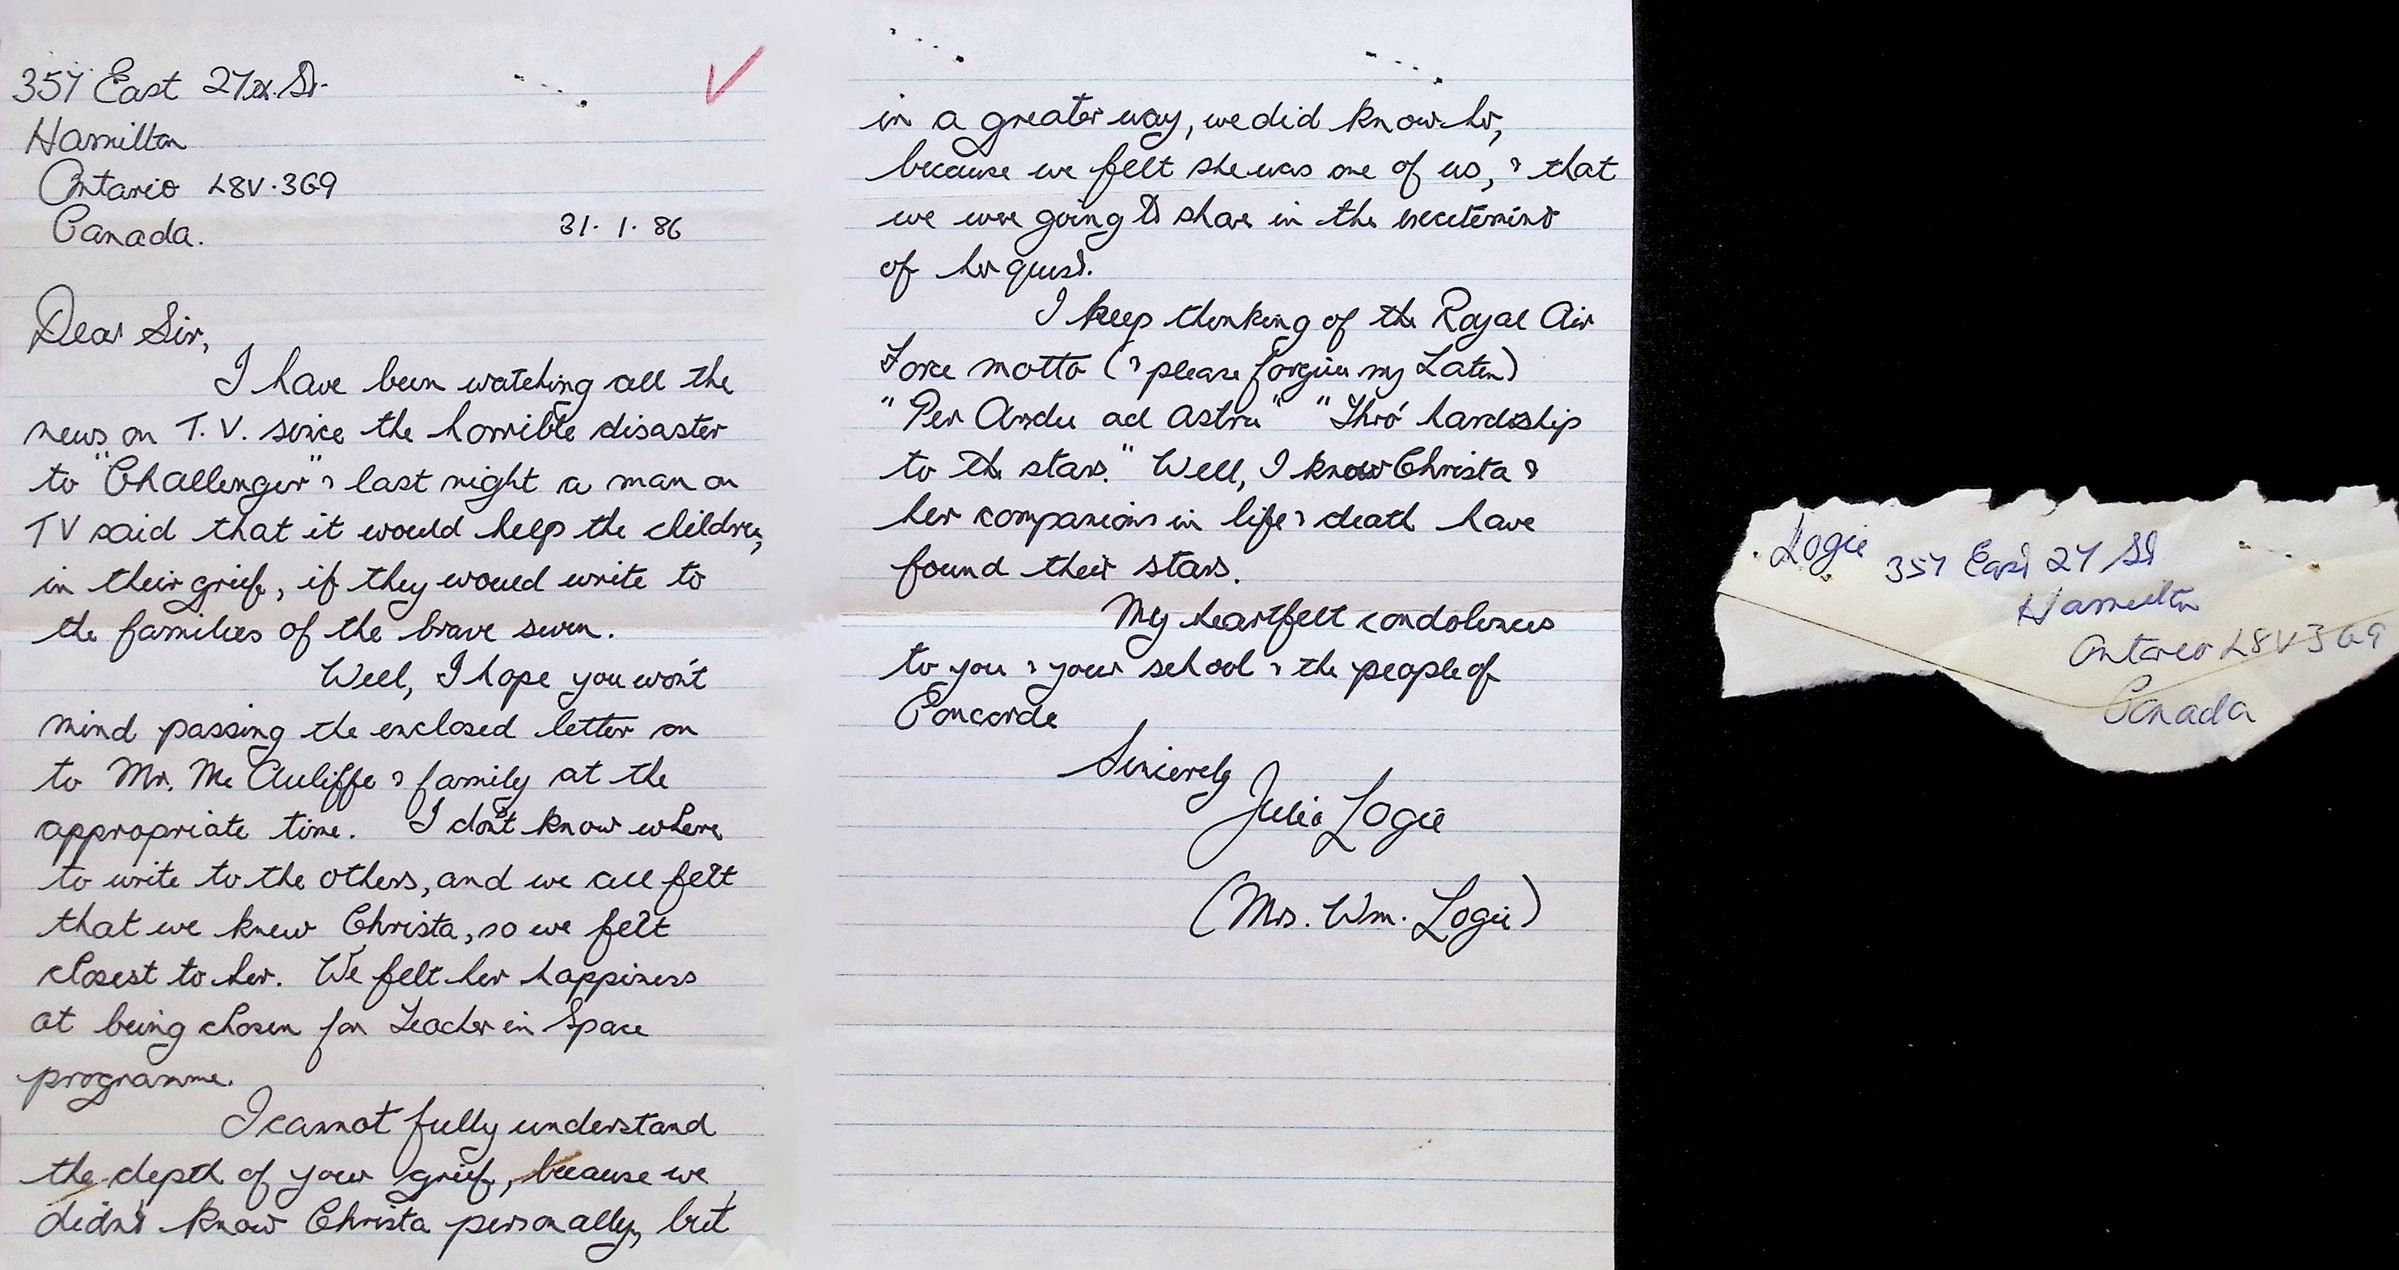 357 East 27th. St.
Hamilton
Ontario L8V·3G9
Canada.
31·1·86
Dear Sir,
I have been watching all the
news on T.V. since the horrible disaster
to "Challenger" & last night a man on
TV said that it would help the children,
in their grief, if they would write to
the families of the brave seven.
Well, I hope you won't
mind passing the enclosed letter on
to Mr. Mc Auliffe & family at the
appropriate time. I don't know where
to write to the others, and we all felt
that we knew Christa, so we felt
closest to her. We felt her happiness
at being chosen for Teacher in Space
programme.
I cannot fully understand
the depth of your grief, because we
didn't know Christa personally, but
in a greater way, we did know her,
because we felt she was one of us, & that
we were going to share in the excitement
of her quest.
I keep thinking of the Royal Air
Force motto (& please forgive my Latin)
"Per Ardu ad astra" "Thro' hardship
to the stars." Well, I know Christa &
her companions in life & death have
found their stars.
My heartfelt condolences
to you & your school & the people of
Concorde
Sincerely
Julia Logie
(Mrs. Wm. Logie)
Logie
357 East 27 St
Hamilton
Ontario L8V3G9
Canada